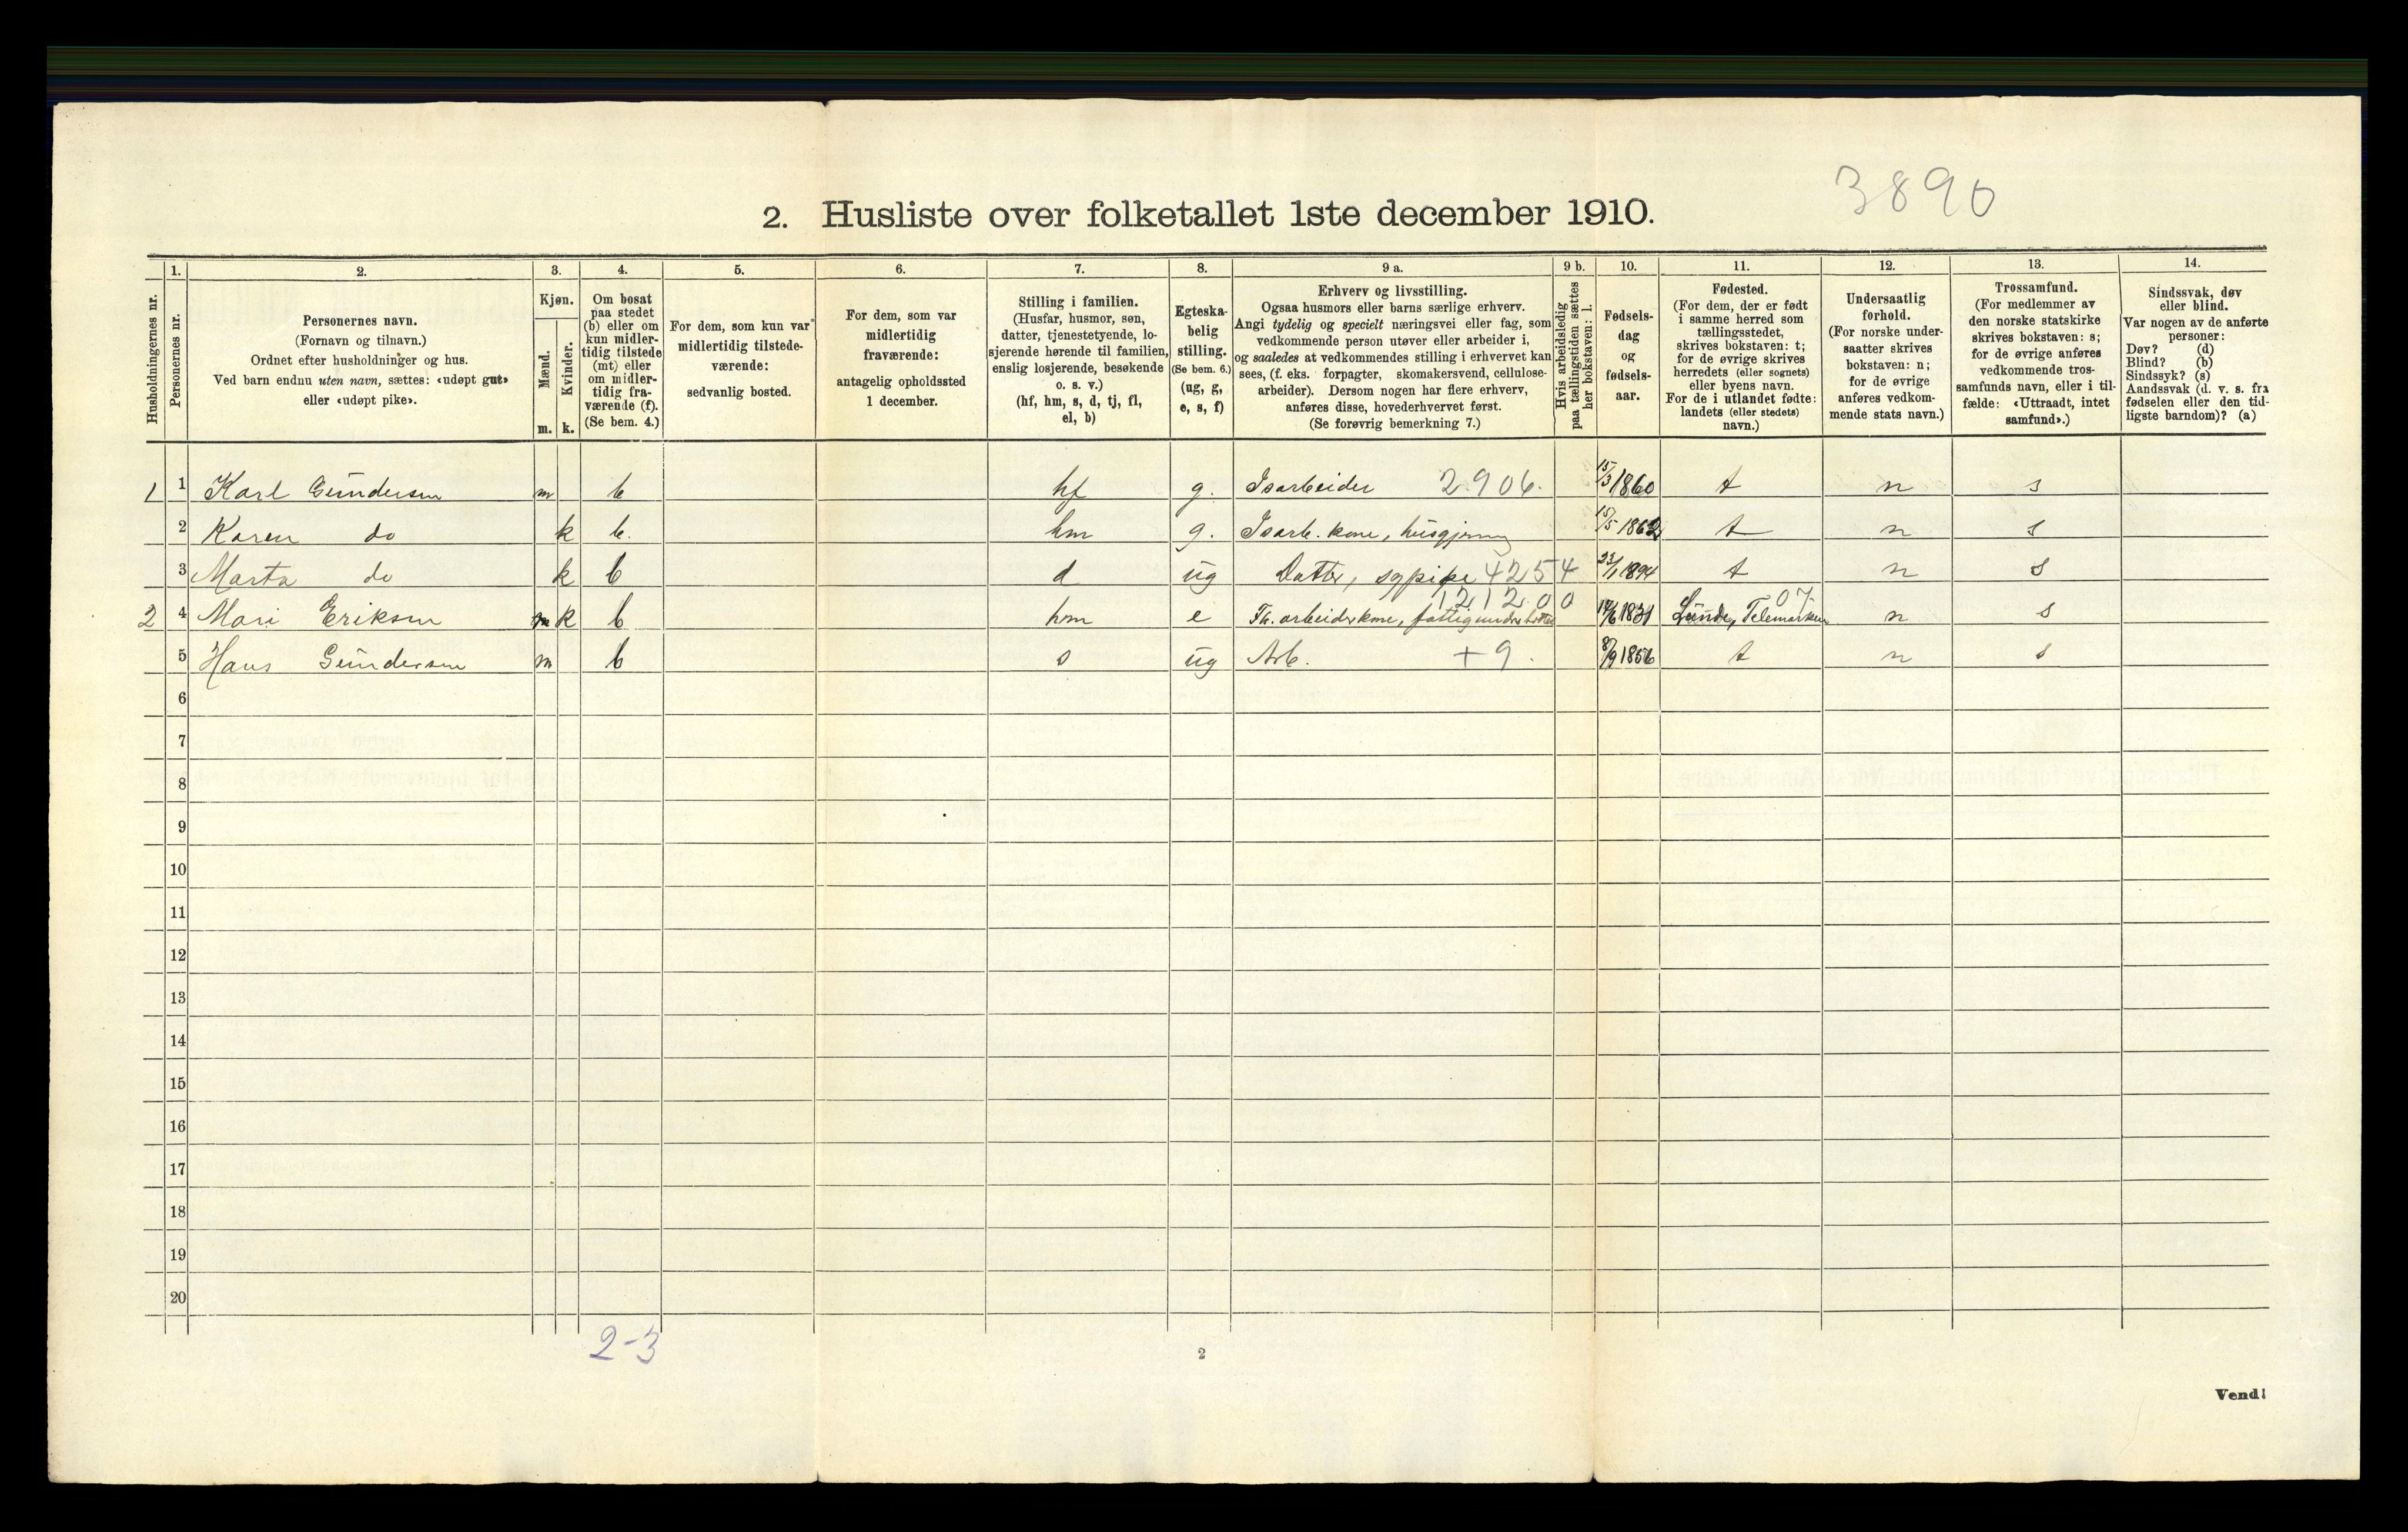 3890
2. Husliste over folketallet 1ste december 1910.
Husholdningernes nr.
1.
Personernes nr.
2.
Personernes navn.
(Fornavn og tilnavn.)
Ordnet efter husholdninger og hus.
Ved barn endnu uten navn, sættes: «udøpt gut»
eller «udøpt pike».
3.
Kjøn.
Mænd.
Kvinder.
m. k.
4.
Om bosat
paa stedet
(b) eller om
kun midler-
tidig tilstede
(mt) eller
om midler-
tidig fra-
værende (f).
(Se bem. 4.)
5.
For dem, som kun var
midlertidig tilstede-
værende:
sedvanlig bosted.
6.
For dem, som var
midlertidig
fraværende:
antagelig opholdssted
1 december.
7.
Stilling i familien.
(Husfar, husmor, søn,
datter, tjenestetyende, lo-
sjerende hørende til familien,
enslig losjerende, besøkende
o. s. v.)
(hf, hm, s, d, tj, fl,
el, b)
8.
Egteska-
belig
stilling.
(Se bem. 6.)
(ug, g,
e, s, f)
9 a.
Erhverv og livsstilling.
Ogsaa husmors eller barns særlige erhverv.
Angi tydelig og specielt næringsvei eller fag, som
vedkommende person utøver eller arbeider i,
og saaledes at vedkommendes stilling i erhvervet kan
sees, (f. eks. forpagter, skomakersvend, cellulose-
arbeider). Dersom nogen har flere erhverv,
anføres disse, hovederhvervet først.
(Se forøvrig bemerkning 7.)
9 b.
Hvis arbeidsledig
paa tællingstiden sættes
her bokstaven: l.
10.
Fødsels-
dag
og
fødsels-
aar.
11.
Fødested.
(For dem, der er født
i samme herred som
tællingsstedet,
skrives bokstaven: t;
for de øvrige skrives
herredets (eller sognets)
eller byens navn.
For de i utlandet fødte:
landets (eller stedets)
navn.)
12.
Undersaatlig
forhold.
(For norske under-
saatter skrives
bokstaven: n;
for de øvrige
anføres vedkom-
mende stats navn.)
13.
Trossamfund.
(For medlemmer av
den norske statskirke
skrives bokstaven: s;
for de øvrige anføres
vedkommende tros-
samfunds navn, eller i til-
fælde: «Uttraadt, intet
samfund».)
14.
Sindssvak, døv
eller blind.
Var nogen av de anførte
personer:
Døv? (d)
Blind? (b)
Sindssyk? (s)
Aandssvak (d. v. s. fra
fødselen eller den tid-
ligste barndom)? (a)
1 1 Karl Gundersen m b hf g. Isarbeider 2.906. 15/3 1860 t n s
2 Karen do k b. hm g. Isarb. kone, husgjerning 15/5 1862 t n s
3 Marta do k b d ug Datter, sypike 4254 23/1 1894 t n s
2 4 Mari Eriksen k b hm e Fh. arbeiderkone, fattigunderstøttet 121200 1831 Lunde, Telemarken 07 n s
5 Hans Gundersen m b s ug Arb. +9. 8/9 1856 t n s
6
7
8
9
10
11
12
13
14
15
16
17
18
19
20
2-3
2
Vend!